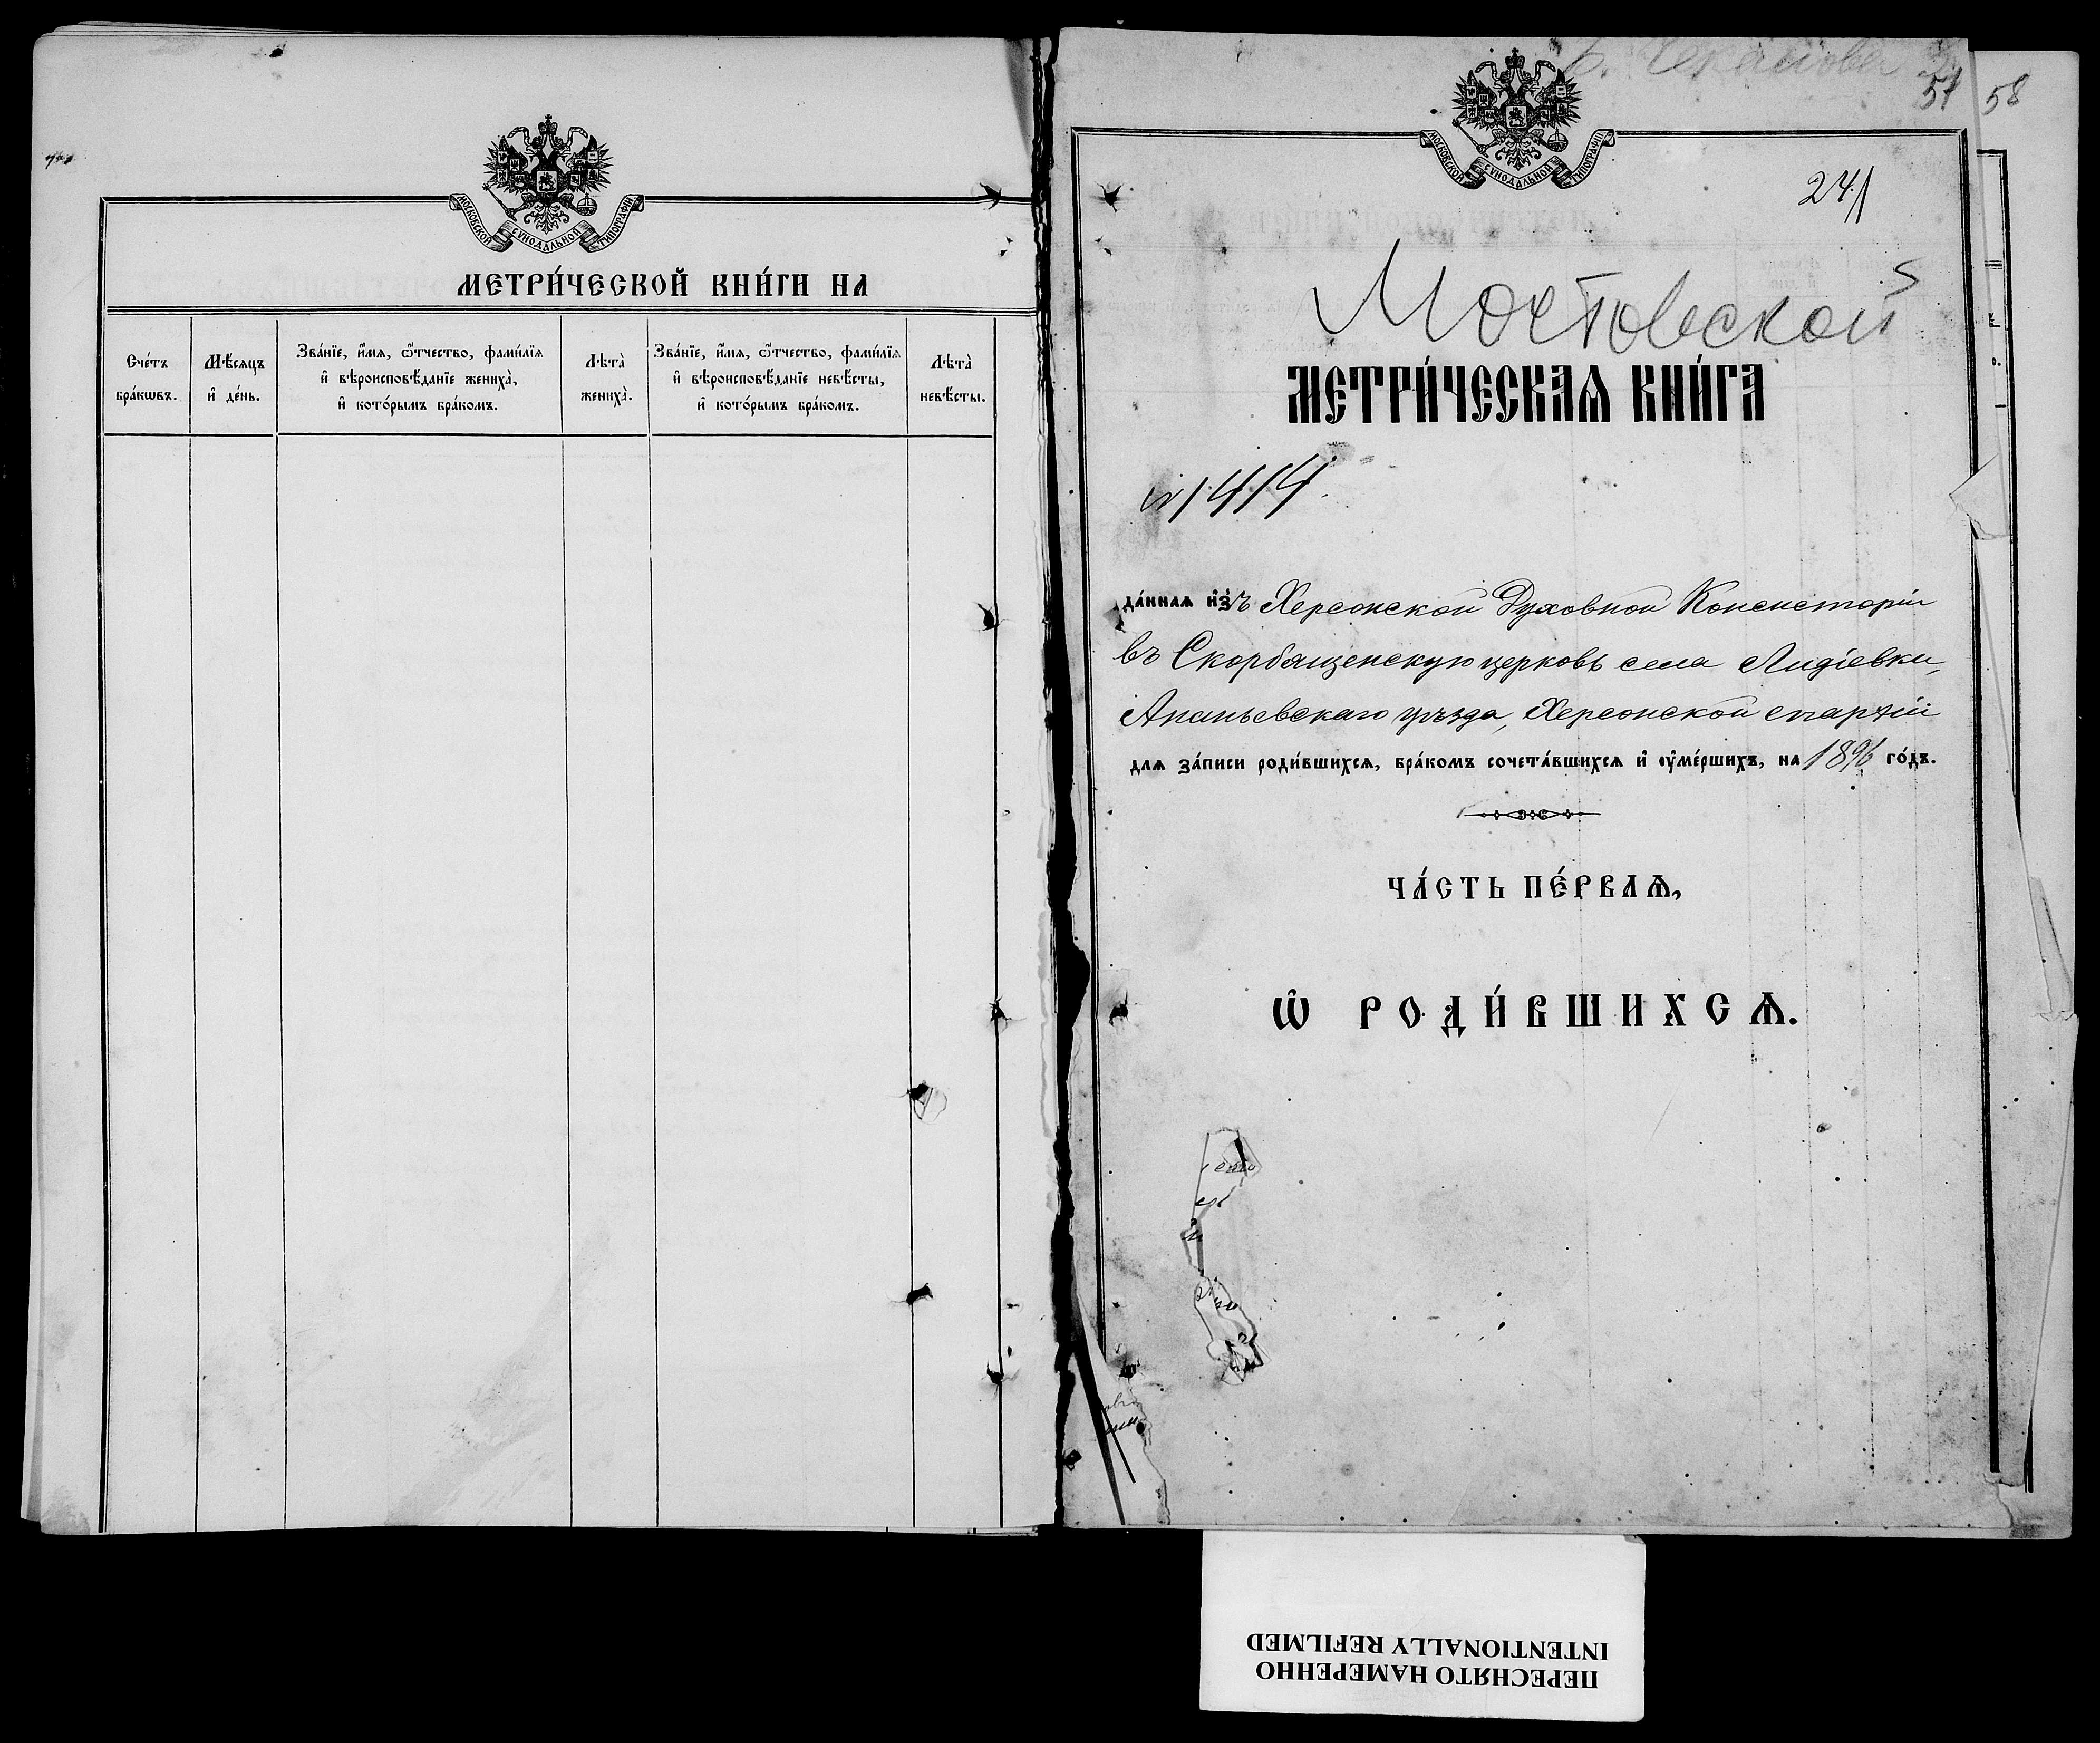 МОСКОВСКОЙ СѴНОДАЛЬНОЙ ТИПОГРАФІИ
МЕТРИ́ЧЕСКОЙ КНИ́ГИ НА
Сче́тъ бра́кѡвъ.
Мѣ́сяцъ и҆ де́нь.
Зва́нїе, и҆́мя, ѻ҆́тчество, фами́лїя
и҆ вѣроисповѣ́данїе жениха̀,
и҆ кото́рымъ бра́комъ.
Лѣта̀ жениха̀.
Зва́нїе, и҆́мя, ѻ҆́тчество, фами́лїя
и҆ вѣроисповѣ́данїе невѣ́сты,
и҆ кото́рымъ бра́комъ.
Лѣта̀ невѣ́сты.
57
58
МОСКОВСКОЙ СѴНОДАЛЬНОЙ ТИПОГРАФІИ
241
Мостовской
МЕТРИ́ЧЕСКАѦ КНИ́ГА
№ 1414.
да́ннаѧ и҆зъ Херсонской Духовной Консисторіи
въ Скорбященскую церковь села Лидіевки,
Ананьевскаго уѣзда, Херсонской епархіи
для за́писи роди́вшихсѧ, бра́комъ сочета́вшихсѧ и҆ ᲂу҆ме́ршихъ, на 1896 го́дъ.
ЧА́СТЬ ПЕ́РВАѦ,
Ѡ҆ РОДИ́ВШИХСѦ.
ПЕРЕСНЯТО НАМЕРЕННО
INTENTIONALLY REFILMED